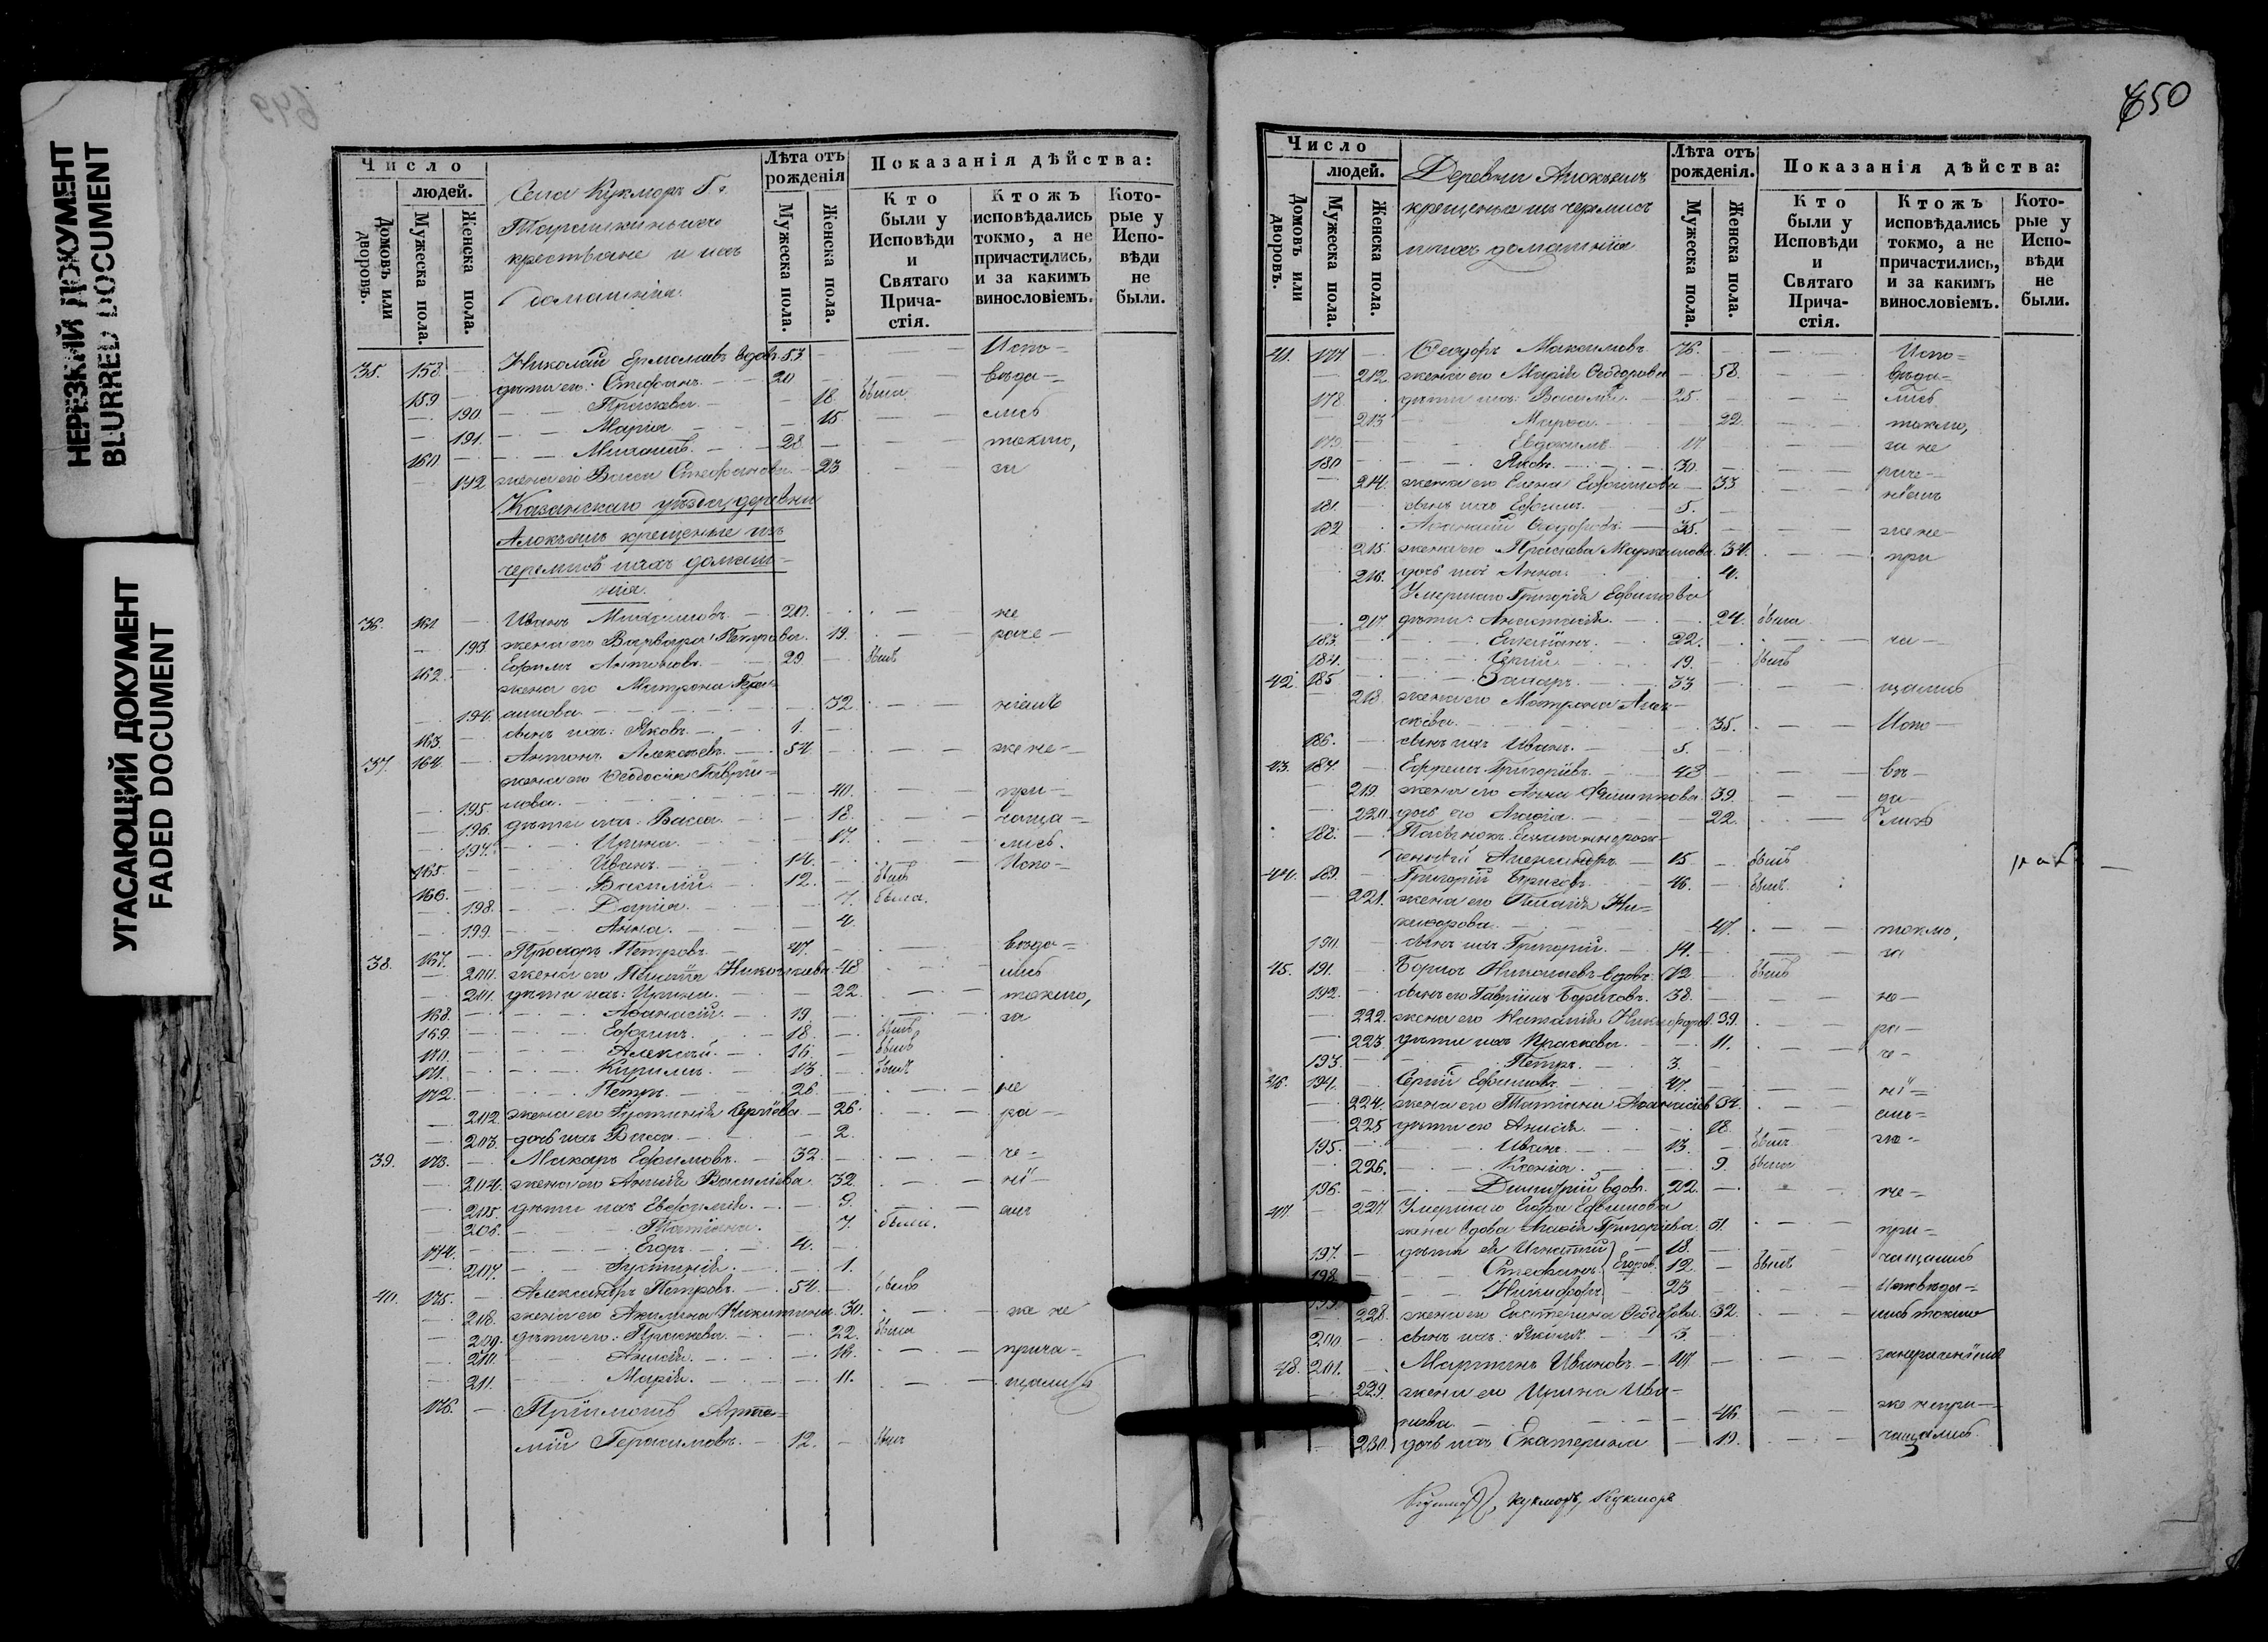 НЕРЕЗКИЙ ДОКУМЕНТ
BLURRED DOCUMENT
УГАСАЮЩИЙ ДОКУМЕНТ
FADED DOCUMENT
649
Число
людей.
Домовъ или дворовъ.
Мужеска пола.
Женска пола.
Села Кукморъ Г.
крестьяне и ихъ
домашнiя.
Лѣта отъ рожденія
Мужеска пола.
Женска пола.
Показанія дѣйства:
Кто были у Исповѣди и Святаго Прича-стія.
Ктожъ исповѣдались токмо, а не причастились, и за какимъ винословіемъ.
Кото-рые у Испо-вѣди не были.
35. 158. Николай Ермолаевъ вдовъ 53 Испо=
159 дѣти его: Стефанъ. 20 вѣда=
190 Праскева 18 была
191. Марiя. 15. лись
160. Михаилъ. 28 токмо,
192 жена его Васса Стефанова 23 за
Казанскаго уѣзда, деревни
крещеные изъ
черемисъ ихъ домаш=
нiя.
36. 161 Иванъ 20. не
193 жена его Варвара Петрова. 19. раче=
162. Ефимъ Антоновъ. 29 былъ
жена его Матрона
194. 32. нiемъ
163. сынъ ихъ: Яковъ. 1.
37. 164. Антонъ Алексѣевъ. 54 же не=
жена его Ѳеодосiя Гаврiи=
195. лова. 40. при=
196. дѣти ихъ: Васса. 18. чаща=
197. Ирина. 17. лись.
165. Иванъ. 14. былъ Испо=
166. Василiй. 12. былъ
198. Дарiя. 7. была.
199. Анна. 4.
38. 167. Прохоръ Петровъ 47. вѣда=
200. жена его 48 лись
201. дѣти ихъ: Ирина. 22. токмо,
168. Аѳанасiй. 19. за
169. Ефимъ. 18. былъ
170. Алексѣй. 16. былъ
171. Кирилъ. 13. былъ
172. Петръ. 26. не
202. жена его Iустинiя Сергiева 26. ра=
203. дочь ихъ Васса. 2.
39. 173. Макаръ Ефимовъ. 32 че=
204. жена его Анисiя Василiева 32. нi=
205. дѣти ихъ Евфимiя. 9. емъ
206. Татiана. 7. была.
174. Егоръ. 4.
207. Iустинiя. 1.
40. 175. Александръ Петровъ. 54. былъ
208. жена его Акилина Никитина 30. же не
209. дѣти его: Праскева. 22. была
210. Анисiя. 16. прича=
211. Марiя. 11. щались
176. Прiимышъ Арте=
мiй Герасимовъ. 12. былъ
650
Число
людей.
Домовъ или дворовъ.
Мужеска пола.
Женска пола.
Деревни
крещеные изъ черемисъ
и ихъ домашнiя
Лѣта отъ рожденія.
Мужеска пола.
Женска пола.
Показанія дѣйства:
Кто были у Исповѣди и Святаго Прича-стія.
Ктожъ исповѣдались токмо, а не причастились, и за какимъ винословіемъ.
Кото-рые у Испо-вѣди не были.
41. 177 Ѳеодоръ Максимовъ 76. Испо=
212. жена его Марiя Ѳеодорова 58. вѣда=
178. дѣти ихъ: Василiй. 25. лись
213 Марѳа. 22. токмо,
179. Евдокимъ 17 за не
180 Яковъ. 30. раче=
214. жена его Елена Ефимова 33 нiемъ
181. сынъ ихъ Ефимъ. 5.
182 Аѳанасiй Ѳеодоровъ. 35. же не=
215. жена его Праскева 34. при
216. дочь ихъ Анна. 4.
Умершаго Григорiя Ефимова
217 дѣти: Анастасiя. 24. была
183. 22. ча=
184. 19. былъ
42. 185 Захаръ. 33 щались
218. жена его Матрона Алек=
сѣева. 35. Испо=
186. сынъ ихъ Иванъ. 5.
43. 187. Ефремъ Григорiевъ. 43 вѣ=
219. жена его Анна Филиппова. 39. да=
220. дочь его 22. лись
188. Александръ 15. былъ
44. 189. Григорiй Борисовъ. 46. былъ
221. жена его Пелагiя Ни=
кифорова. 47. токмо,
190. сынъ ихъ Григорiй. 14. за
45. 191. Борисъ Николаевъ вдовъ. 72 былъ
192. сынъ его Гаврiилъ Борисовъ. 38. не=
222. жена его Наталiя Никифоров. 39. ра=
223. дѣти ихъ Праскева. 11. че=
193. Петръ. 3.
46. 194. Сергiй Ефимовъ. 47. нi=
224. жена его Татiана Аѳанасiев 34. емъ=
225 дѣти его Анисiя. 18. же=
195. Иванъ. 13. былъ
226. Ксенiя. 9. была
196. Димитрiй вдов. 22. не=
47. 227 Умершаго Егора Ефимова
жена вдова Григорiева. 51. при=
197. дѣти ея Игнатiй 18. чащались
198. Стефанъ Егоров. 12. былъ
199. Никифоръ 23 исповѣда=
228. жена его Екатерина Ѳеодорова. 32. лись токмо
200 сынъ ихъ: 3
48. 201. Мартинъ Ивановъ. 47 занераченiемъ
229. жена его Ирина Ива=
нова. 46. же непри=
230. дочь ихъ Екатерина 19. чащались.
Кукморъ, Кукморъ